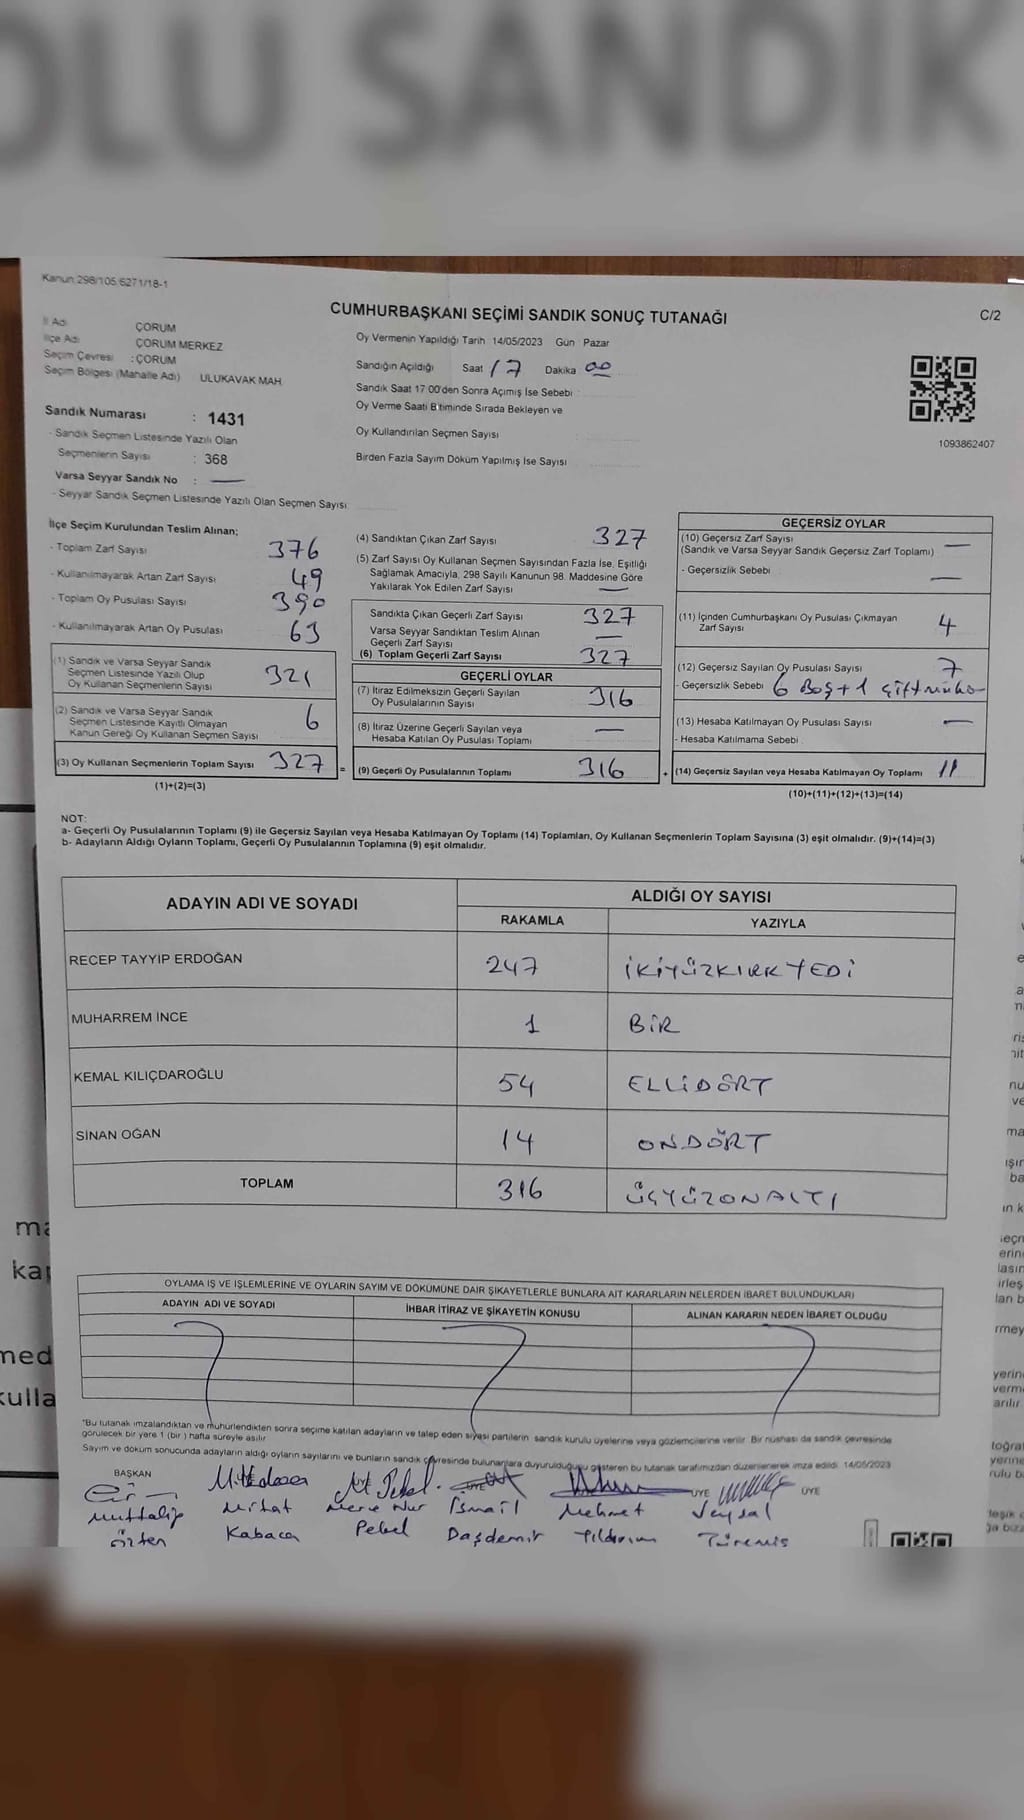 OLU SANDIK
Kanun:298/105,6271/18-1
CUMHURBAŞKANI SEÇİMİ SANDIK SONUÇ TUTANAĞI
C/2
İl Adı ÇORUM
İlçe Adı ÇORUM MERKEZ
Seçim Çevresi : ÇORUM
Seçim Bölgesi (Mahalle Adı) ULUKAVAK MAH.
Oy Vermenin Yapıldığı Tarih 14/05/2023 Gün Pazar
Sandığın Açıldığı Saat 17 Dakika 00
Sandık Saat 17:00'den Sonra Açımış İse Sebebi :
Oy Verme Saati Bitiminde Sırada Bekleyen ve
Oy Kullandırılan Seçmen Sayısı
Birden Fazla Sayım Döküm Yapılmış İse Sayısı
1093862407
Sandık Numarası : 1431
- Sandık Seçmen Listesinde Yazılı Olan
Seçmenlerin Sayısı : 368
Varsa Seyyar Sandık No : —
- Seyyar Sandık Seçmen Listesinde Yazılı Olan Seçmen Sayısı
İlçe Seçim Kurulundan Teslim Alınan;
- Toplam Zarf Sayısı 376
- Kullanılmayarak Artan Zarf Sayısı 49
- Toplam Oy Pusulası Sayısı 390
- Kullanılmayarak Artan Oy Pusulası 63
(1) Sandık ve Varsa Seyyar Sandık
Seçmen Listesinde Yazılı Olup
Oy Kullanan Seçmenlerin Sayısı 321
(2) Sandık ve Varsa Seyyar Sandık
Seçmen Listesinde Kayıtlı Olmayan
Kanun Gereği Oy Kullanan Seçmen Sayısı 6
(3) Oy Kullanan Seçmenlerin Toplam Sayısı 327 =
(1)+(2)=(3)
(4) Sandıktan Çıkan Zarf Sayısı 327
(5) Zarf Sayısı Oy Kullanan Seçmen Sayısından Fazla İse, Eşitliği
Sağlamak Amacıyla, 298 Sayılı Kanunun 98. Maddesine Göre
Yakılarak Yok Edilen Zarf Sayısı —
Sandıkta Çıkan Geçerli Zarf Sayısı 327
Varsa Seyyar Sandıktan Teslim Alınan
Geçerli Zarf Sayısı —
(6) Toplam Geçerli Zarf Sayısı 327
GEÇERLİ OYLAR
(7) İtiraz Edilmeksizin Geçerli Sayılan
Oy Pusulalarının Sayısı 316
(8) İtiraz Üzerine Geçerli Sayılan veya
Hesaba Katılan Oy Pusulası Toplamı —
(9) Geçerli Oy Pusulalarının Toplamı 316 +
GEÇERSİZ OYLAR
(10) Geçersiz Zarf Sayısı
(Sandık ve Varsa Seyyar Sandık Geçersiz Zarf Toplamı) —
- Geçersizlik Sebebi —
(11) İçinden Cumhurbaşkanı Oy Pusulası Çıkmayan
Zarf Sayısı 4
(12) Geçersiz Sayılan Oy Pusulası Sayısı 7
- Geçersizlik Sebebi 6 Boş+1 çift mühür
(13) Hesaba Katılmayan Oy Pusulası Sayısı —
- Hesaba Katılmama Sebebi
(14) Geçersiz Sayılan veya Hesaba Katılmayan Oy Toplamı 11
(10)+(11)+(12)+(13)=(14)
NOT:
a- Geçerli Oy Pusulalarının Toplamı (9) ile Geçersiz Sayılan veya Hesaba Katılmayan Oy Toplamı (14) Toplamları, Oy Kullanan Seçmenlerin Toplam Sayısına (3) eşit olmalıdır. (9)+(14)=(3)
b- Adayların Aldığı Oyların Toplamı, Geçerli Oy Pusulalarının Toplamına (9) eşit olmalıdır.
ADAYIN ADI VE SOYADI
ALDIĞI OY SAYISI
RAKAMLA YAZIYLA
RECEP TAYYIP ERDOĞAN 247 İKİYÜZKIRKYEDİ
MUHARREM İNCE 1 BİR
KEMAL KILIÇDAROĞLU 54 ELLİDÖRT
SİNAN OĞAN 14 ONDÖRT
TOPLAM 316 ÜÇYÜZONALTI
OYLAMA İŞ VE İŞLEMLERİNE VE OYLARIN SAYIM VE DÖKÜMÜNE DAİR ŞİKAYETLERLE BUNLARA AİT KARARLARIN NELERDEN İBARET BULUNDUKLARI
ADAYIN ADI VE SOYADI İHBAR İTİRAZ VE ŞİKAYETİN KONUSU ALINAN KARARIN NEDEN İBARET OLDUĞU
"Bu tutanak imzalandıktan ve mühürlendikten sonra seçime katılan adayların ve talep eden siyasi partilerin sandık kurulu üyelerine veya gözlemcilerine verilir. Bir nüshası da sandık çevresinde
görülecek bir yere 1 (bir) hafta süreyle asılır.
Sayım ve döküm sonucunda adayların aldığı oyların sayılarını ve bunların sandık çevresinde bulunanlara duyurulduğunu gösteren bu tutanak tarafımızdan düzenlenerek imza edildi. 14/05/2023
BAŞKAN ÜYE ÜYE ÜYE
Muttalip Mithat Merve Nur İsmail Mehmet Veysal
Özten Kabaca Pebel Daşdemir Yıldırım